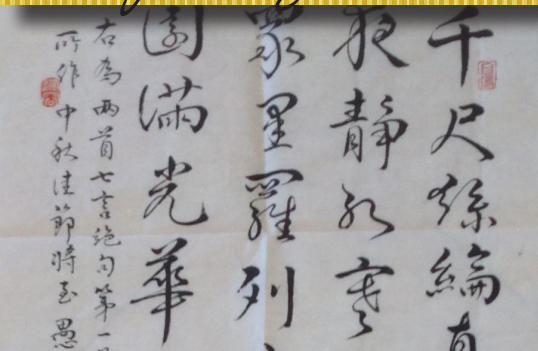 千尺絲綸直
夜靜水寒
眾星羅列
圓滿光華
右為兩首七言絕句第一
所作中秋佳節將至愚